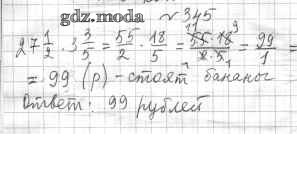 gdz.moda № 345
27 1/2 · 3 3/5 = 55/2 · 18/5 = 55·18/2·5 = 99/1 =
= 99 (р) - стоят бананы
Ответ: 99 рублей